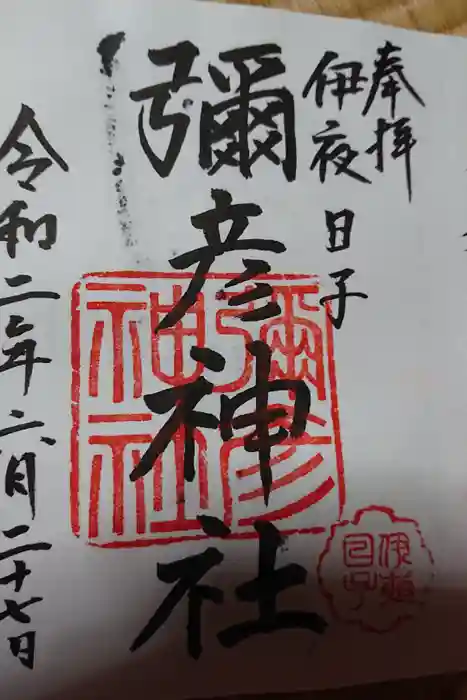 奉拝
伊夜日子
彌彦神社
令和二年六月二十七日
彌彦
神社